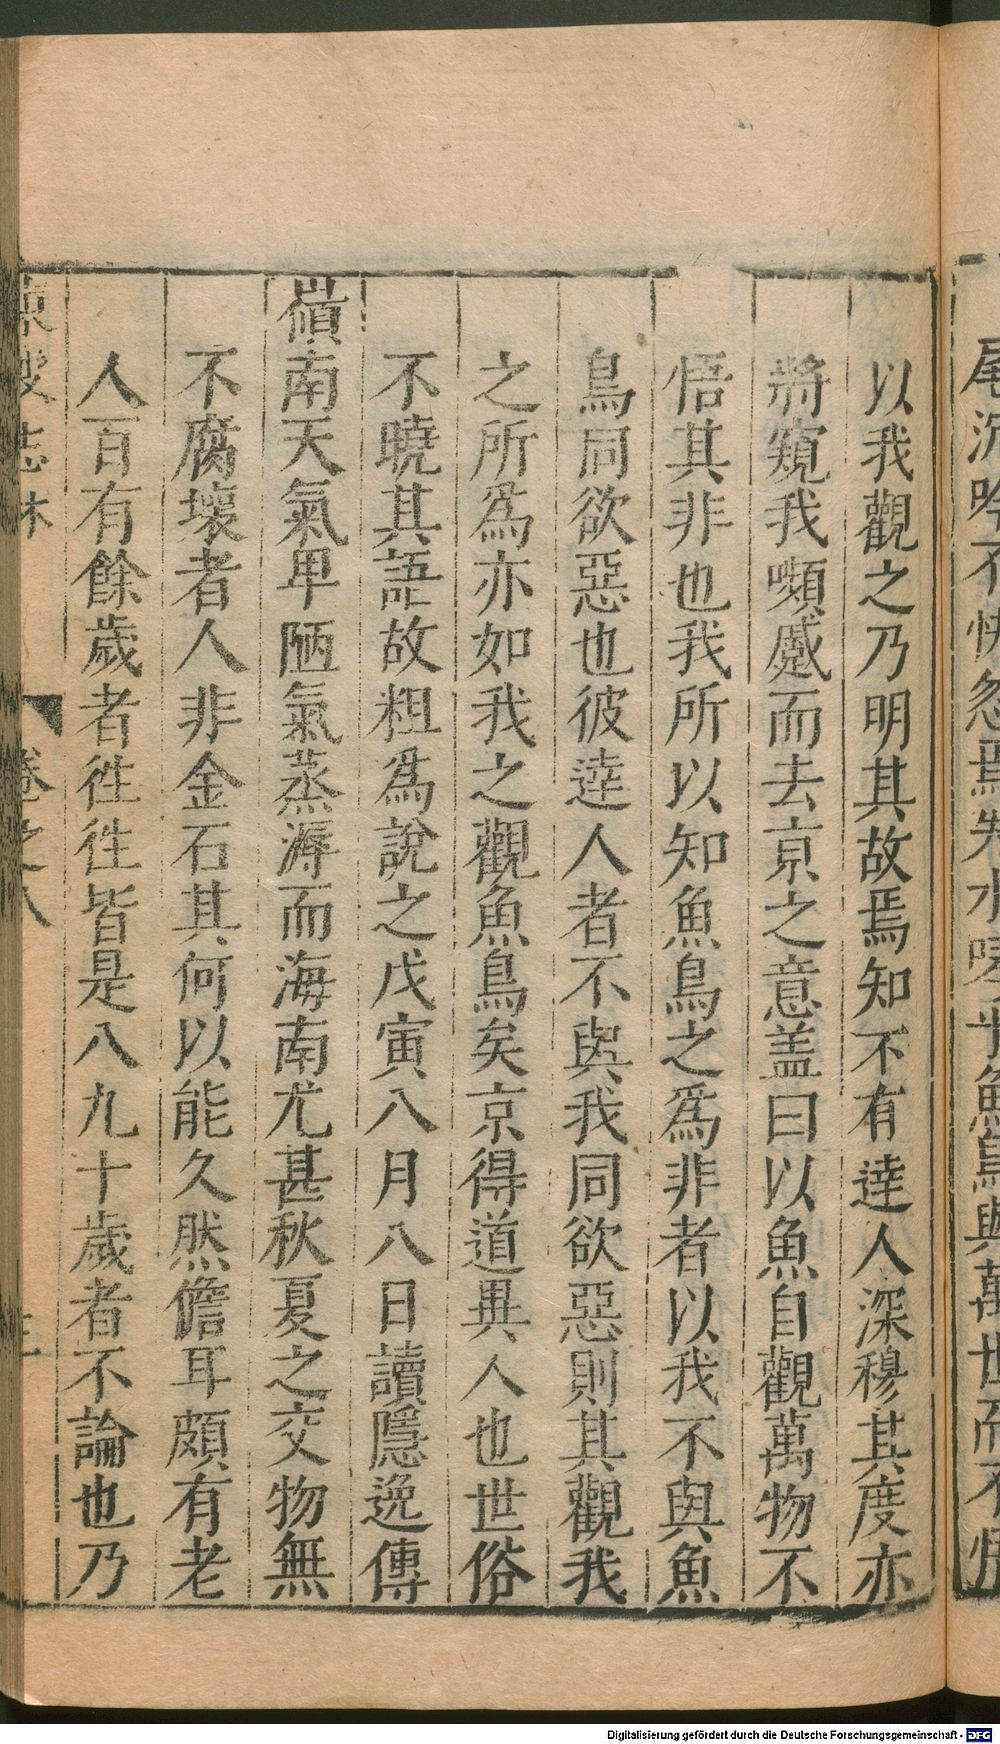 尾沉吟不快忽焉失水嗟乎魚鳥與萬世而不悟
以我觀之乃明其故焉知不有達人深穆其度亦
將窺我嚬蹙而去京之意盖曰以魚自觀萬物不
悟其非也我所以知魚鳥之爲非者以我不與魚
鳥同欲惡也彼逹人者不與我同欲惡則其觀我
之所爲亦如我之觀魚鳥矣京得道異人也世俗
不曉其語故粗爲說之戊寅八月八日讀隱逸傳
嶺南天氣卑陋氣蒸溽而海南尤甚秋夏之交物無
不腐壞者人非金石其何以能久然儋耳頗有老
人百有餘歲者徃徃皆是八九十歲者不論也乃
東坡志林 卷之八
Digitalisierung gefördert durch die Deutsche Forschungsgemeinschaft - DFG